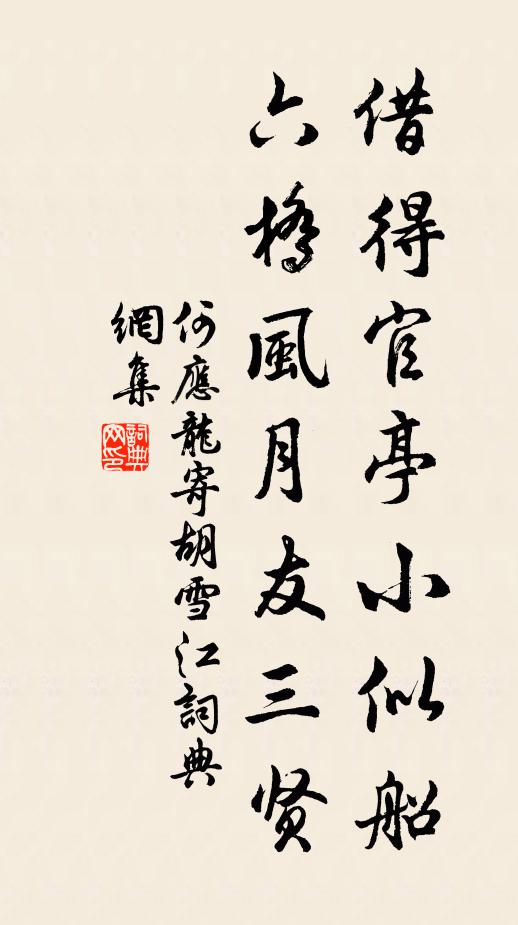 借得官亭小似船
六橋風月友三贤
何應龍寄胡雪江詞典
網集
詞典
网印